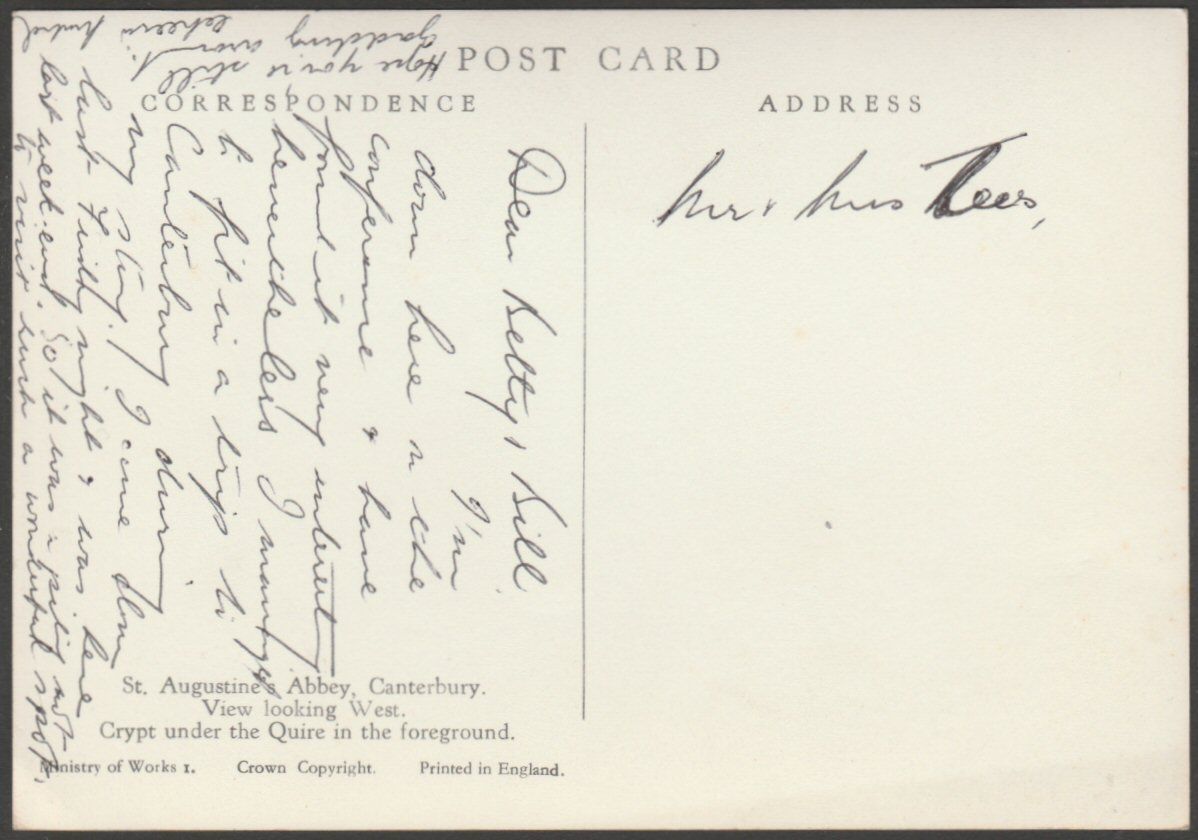 POST CARD
CORRESPONDENCE
ADDRESS
Mr & Mrs Lees,
Dear Betty & Bill,
I'm
down here n the
conference & have
found it very interesting
nevertheless I managed
to fit in a trip to
Canterbury during
my stay. I came down
last Friday night & was here
last week-end. So it was a pity not
to visit such a wonderful spot.
Hope you're still
gadding around.
St. Augustine's Abbey, Canterbury.
View looking West.
Crypt under the Quire in the foreground.
Ministry of Works 1. Crown Copyright. Printed in England.